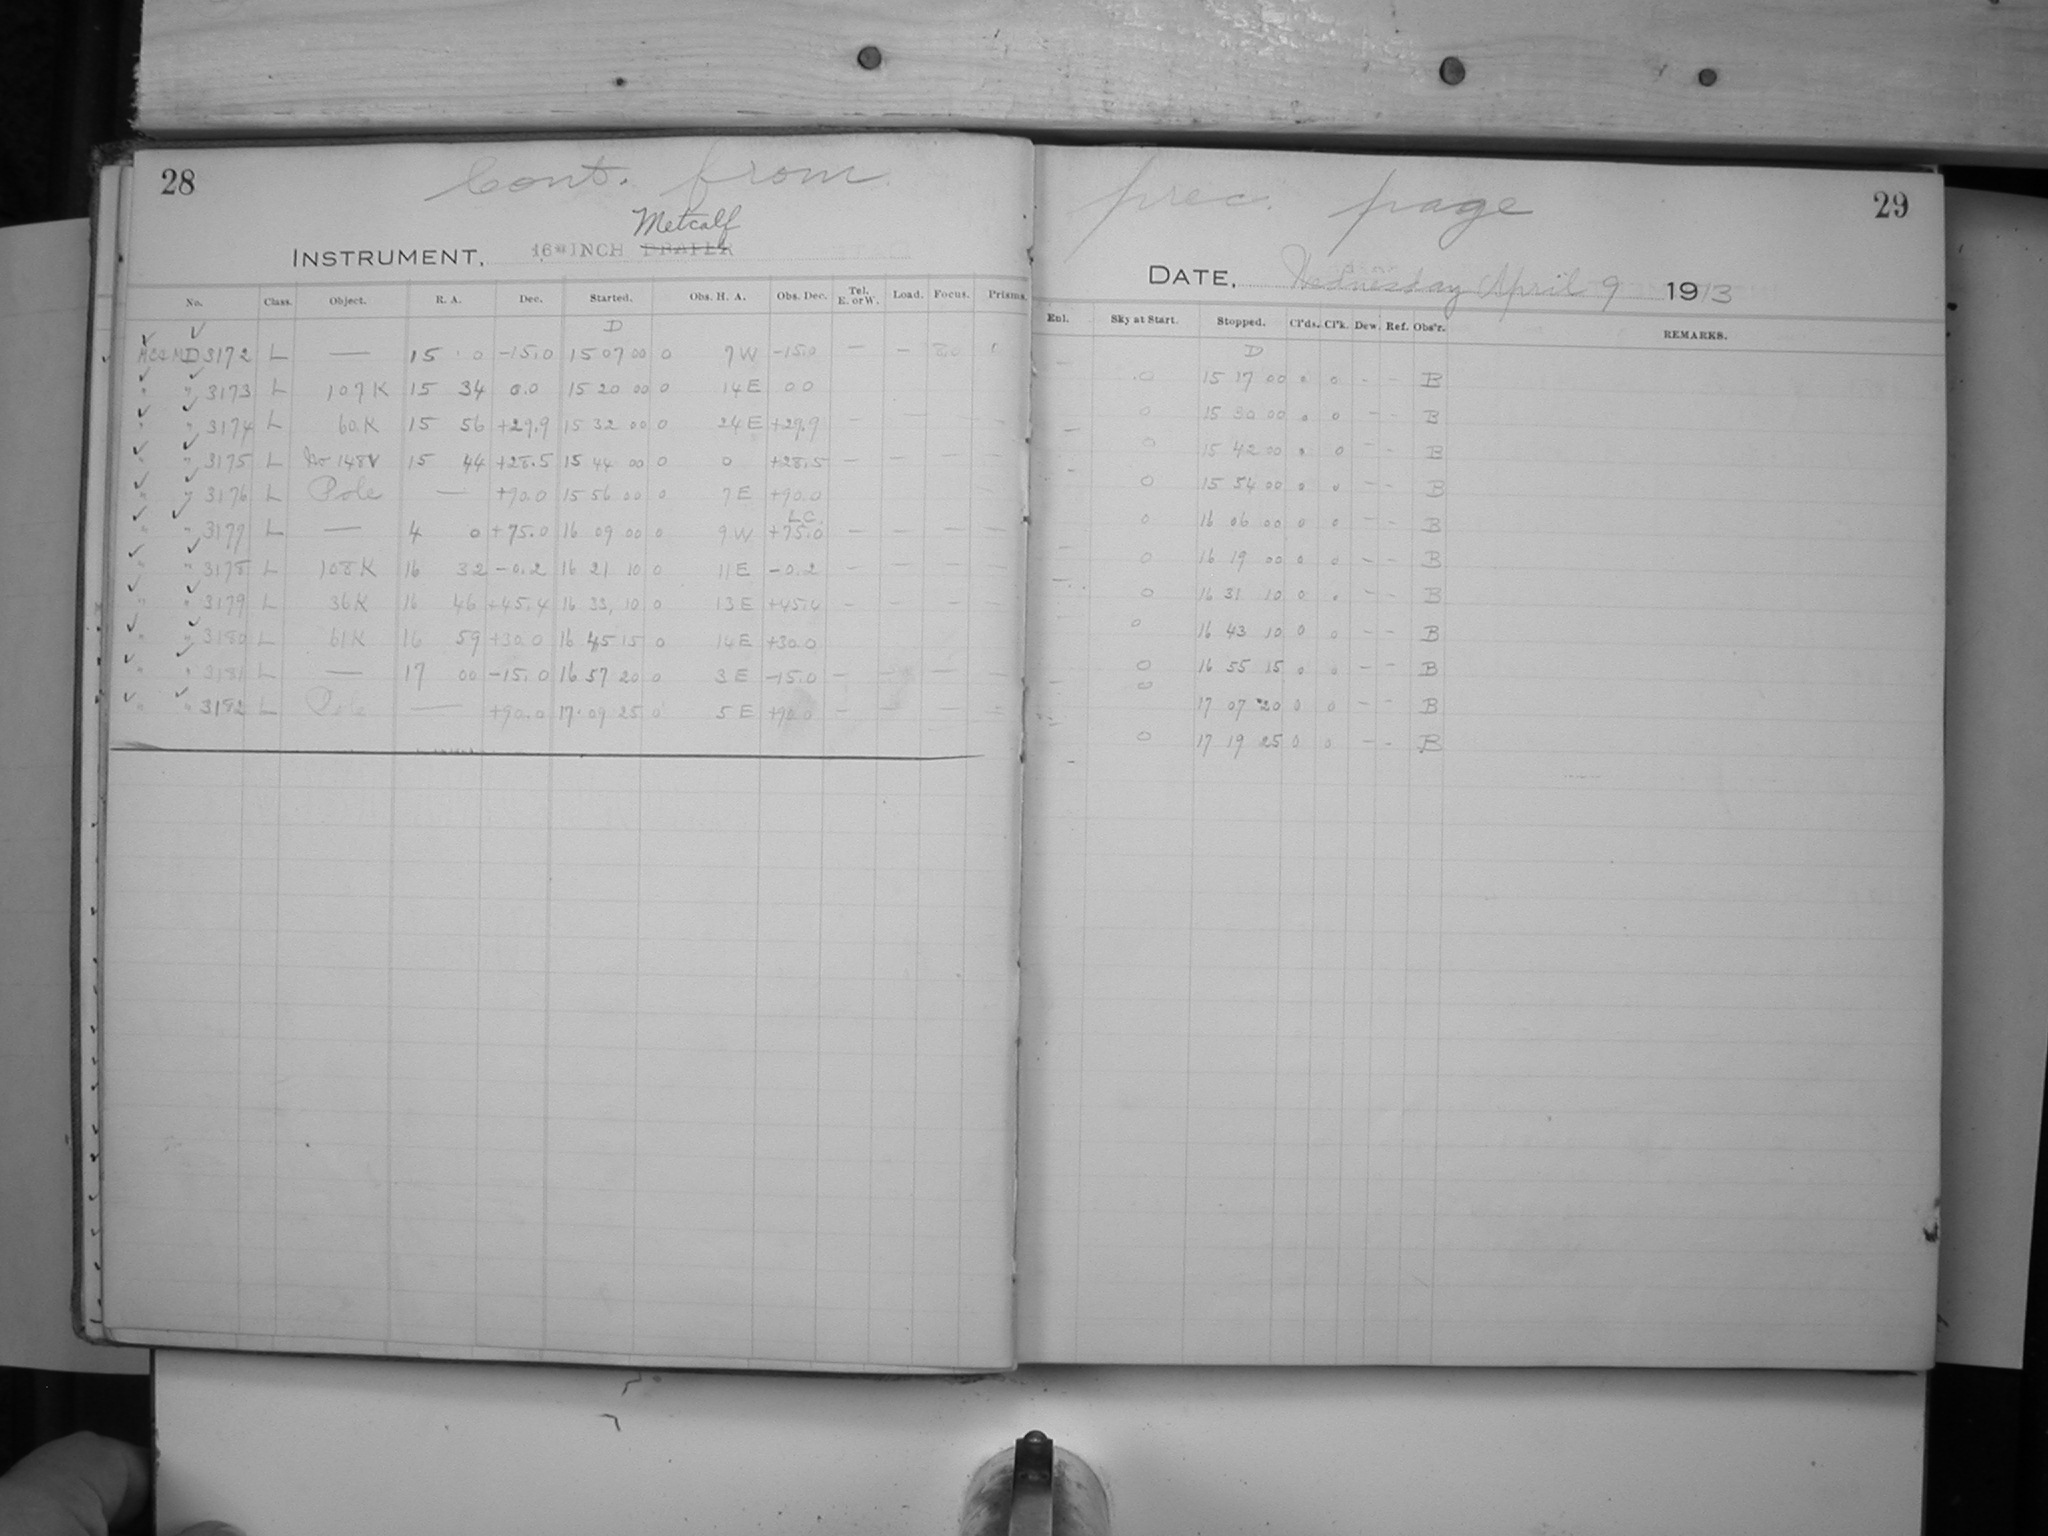 28
Cont. from
Metcalf
INSTRUMENT, 16 INCH DRAPER
No. Class. Object. R. A. Dec. Started. Obs. H. A. Obs. Dec. Tel. E. or W. Load. Focus. Prisms.
D
3172 L — 15 0 -15.0 15 07 00 0 7 W -15.0 — — 8.0
" " 3173 L 107 K 15 34 0.0 15 20 00 0 14 E 0.0
" " 3174 L 60 K 15 56 +29.9 15 32 00 0 24 E +29.9
" " 3175 L 148 15 44 +28.5 15 44 00 0 0 +28.5 — — — —
" " 3176 L Pole — +90.0 15 56 00 0 7 E +90.0
L.C.
" " 3177 L — 4 0 +75.0 16 09 00 0 9 W +75.0 — — — —
" " 3178 L 108 K 16 32 -0.2 16 21 10 0 11 E -0.2 — — — —
" " 3179 L 36 K 16 46 +45.4 16 33 10 0 13 E +45.4 — — — —
" " 3180 L 61 K 16 59 +30.0 16 45 15 0 14 E +30.0
" " 3181 L — 17 00 -15.0 16 57 20 0 3 E -15.0 — — — —
" " 3182 L Pole — +90.0 17 09 25 0 5 E +90.0 — — — —
prec. page
29
DATE, Wednesday April 9 1913
Enl. Sky at Start. Stopped. Cl'ds. Cl'k. Dew. Ref. Obs'r. REMARKS.
D
0 15 17 00 0 0 - - B
0 15 30 00 0 0 - - B
0 15 42 00 0 0 - - B
0 15 54 00 0 0 - - B
0 16 06 00 0 0 - - B
0 16 19 00 0 0 - - B
0 16 31 10 0 0 - - B
0 16 43 10 0 0 - - B
0 16 55 15 0 0 - - B
0 17 07 20 0 0 - - B
0 17 19 25 0 0 - - B